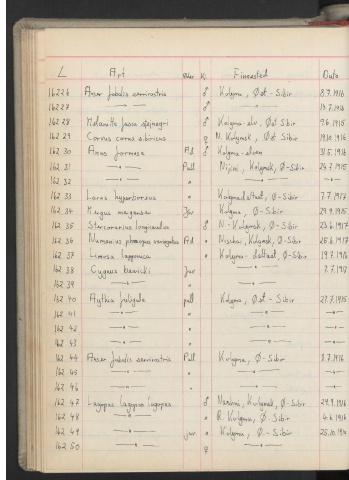 L Art Alder K. Finnested Dato
16226 Anser fabalis serrirostris ♂ Kolyma, Øst-Sibir 8.7.1916
16227 —"— ♂ —"— 13.7.1916
16228 Melanitta fusca stejnegri ♂ Kolyma-elv, Øst Sibir 9.6.1915
16229 Corvus corax sibiricus ♀ N. Kolymsk, Øst Sibir 19.10.1916
16230 Anas formosa Ad ♂ Kolyma-elven 31.5.1916
16231 —"— Pull Nijini, Kolymsk, Ø-Sibir 24.7.1915
16232 —"— " —"— —"—
16233 Larus hyperboreus " Kolymadeltaet, Ø-Sibir 7.7.1917
16234 Mergus merganser Juv " Kolyma, Ø-Sibir 29.9.1915
16235 Stercorarius longicaudus ♂ N-Kolymsk, Ø-Sibir 23.6.1917
16236 Numenius phaeopus variegatus Ad " Nischni, Kolymsk, Ø-Sibir 25.6.1917
16237 Limosa lapponica " Kolyma-deltaet, Ø-Sibir 19.7.1916
16238 Cygnus bewicki Juv —"— 7.7.1917
16239 —"— " —"—
16240 Aythya fuligula pull Kolyma, Øst-Sibir 27.7.1915
16241 —"— " —"— —"—
16242 —"— " —"— —"—
16243 —"— " —"— —"—
16244 Anser fabalis serrirostris Pull Kolyma, Ø-Sibir 8.7.1916
16245 —"— " —"— —"—
16246 —"— " —"— —"—
16247 Lagopus lagopus lagopus ♂ Kolymsk, Ø-Sibir 24.9.1916
16248 —"— " Kolyma, Ø-Sibir 4.6.1916
16249 —"— juv " Kolyma, Ø-Sibir 25.10.1914
16250 —"— ♀